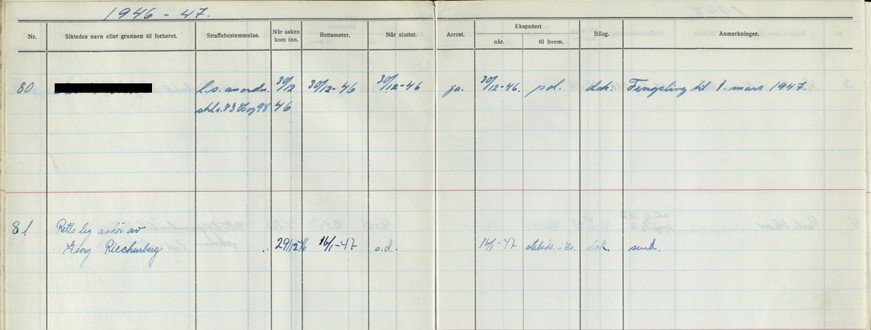 1946-47.
Nr. Siktedes navn eller grunnen til forhøret. Straffebestemmelse. Når saken kom inn. Rettsmøter. Når sluttet. Arrest. Ekspedert når. til hvem. Bilag. Anmerkninger.
80 l.s. anordn. 30/12 30/12-46 30/12-46 ja. 30/12-46. pol. dok. Fengsling til 1. mars 1947.
46
81 Retts leg avhør av
Georg 29/12-46 16/1-47 s.d. 16/1-47 dok.